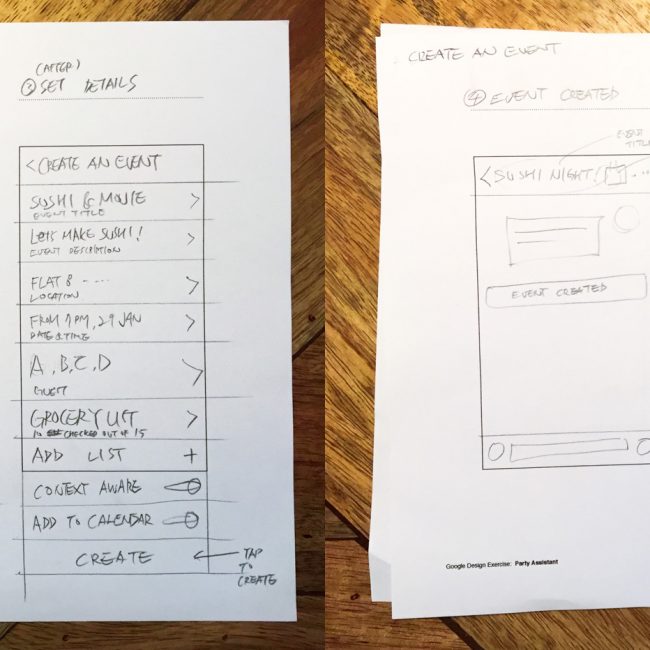 (AFTER)
③ SET DETAILS
< CREATE AN EVENT
SUSHI & MOVIE >
EVENT TITLE
LET'S MAKE SUSHI! >
EVENT DESCRIPTION
FLAT 8 - ... >
LOCATION
FROM 7PM, 29 JAN >
DATE & TIME
A, B, C, D >
GUEST
GROCERY LIST >
10 CHECKED OUT OF 15
ADD LIST +
CONTEXT AWARE
ADD TO CALENDAR
CREATE ← TAP
TO
CREATE
CREATE AN EVENT
④ EVENT CREATED
EVENT
TITLE
< SUSHI NIGHT! ...
EVENT CREATED
Google Design Exercise: Party Assistant